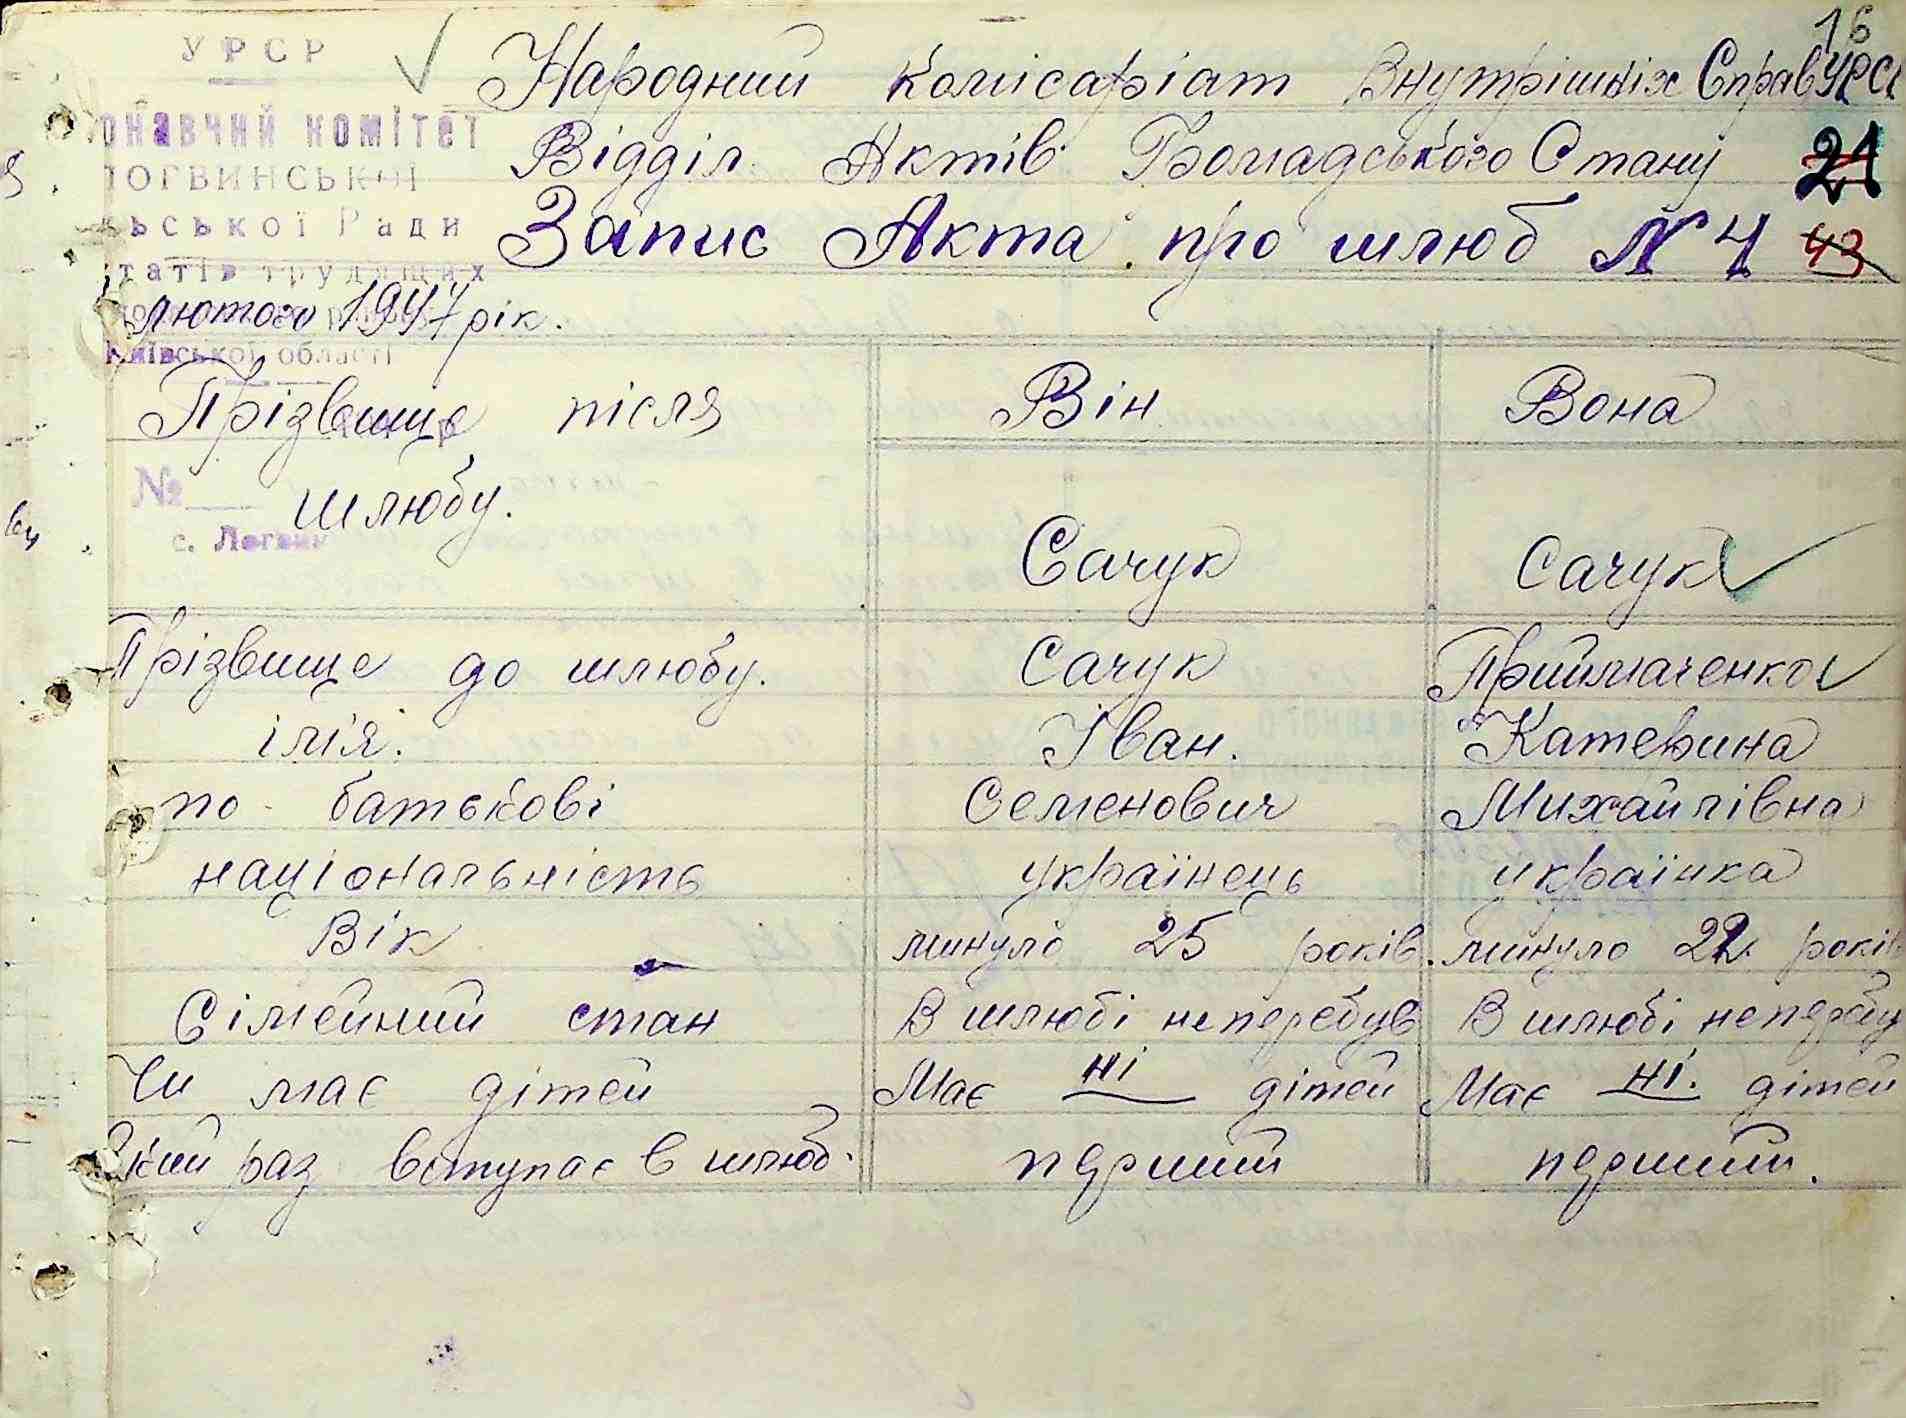 16
УРСР
Народний Комісаріат Внутрішніх Справ УРС
онавчий комітет
Відділ Актів Громадського Стану 21
ЛОГВИНСЬКОЇ
ської Ради
Запис Акта про шлюб № 4 43
татів трудящих
лютого 1947 рік.
Київської області
Прізвище після
шлюбу.
№
с. Логвин
Він
Вона
Сачук
Сачук
Прізвище до шлюбу. Сачук Приймаченко
ім'я. Іван. Катерина
по батькові Семенович Михайлівна
національність українець українка
Вік минуло 25 років. минуло 22 років
Сімейний стан В шлюбі неперебув В шлюбі неперебу
Чи має дітей Має ні дітей Має ні. дітей
Який раз вступає в шлюб. перший перший.